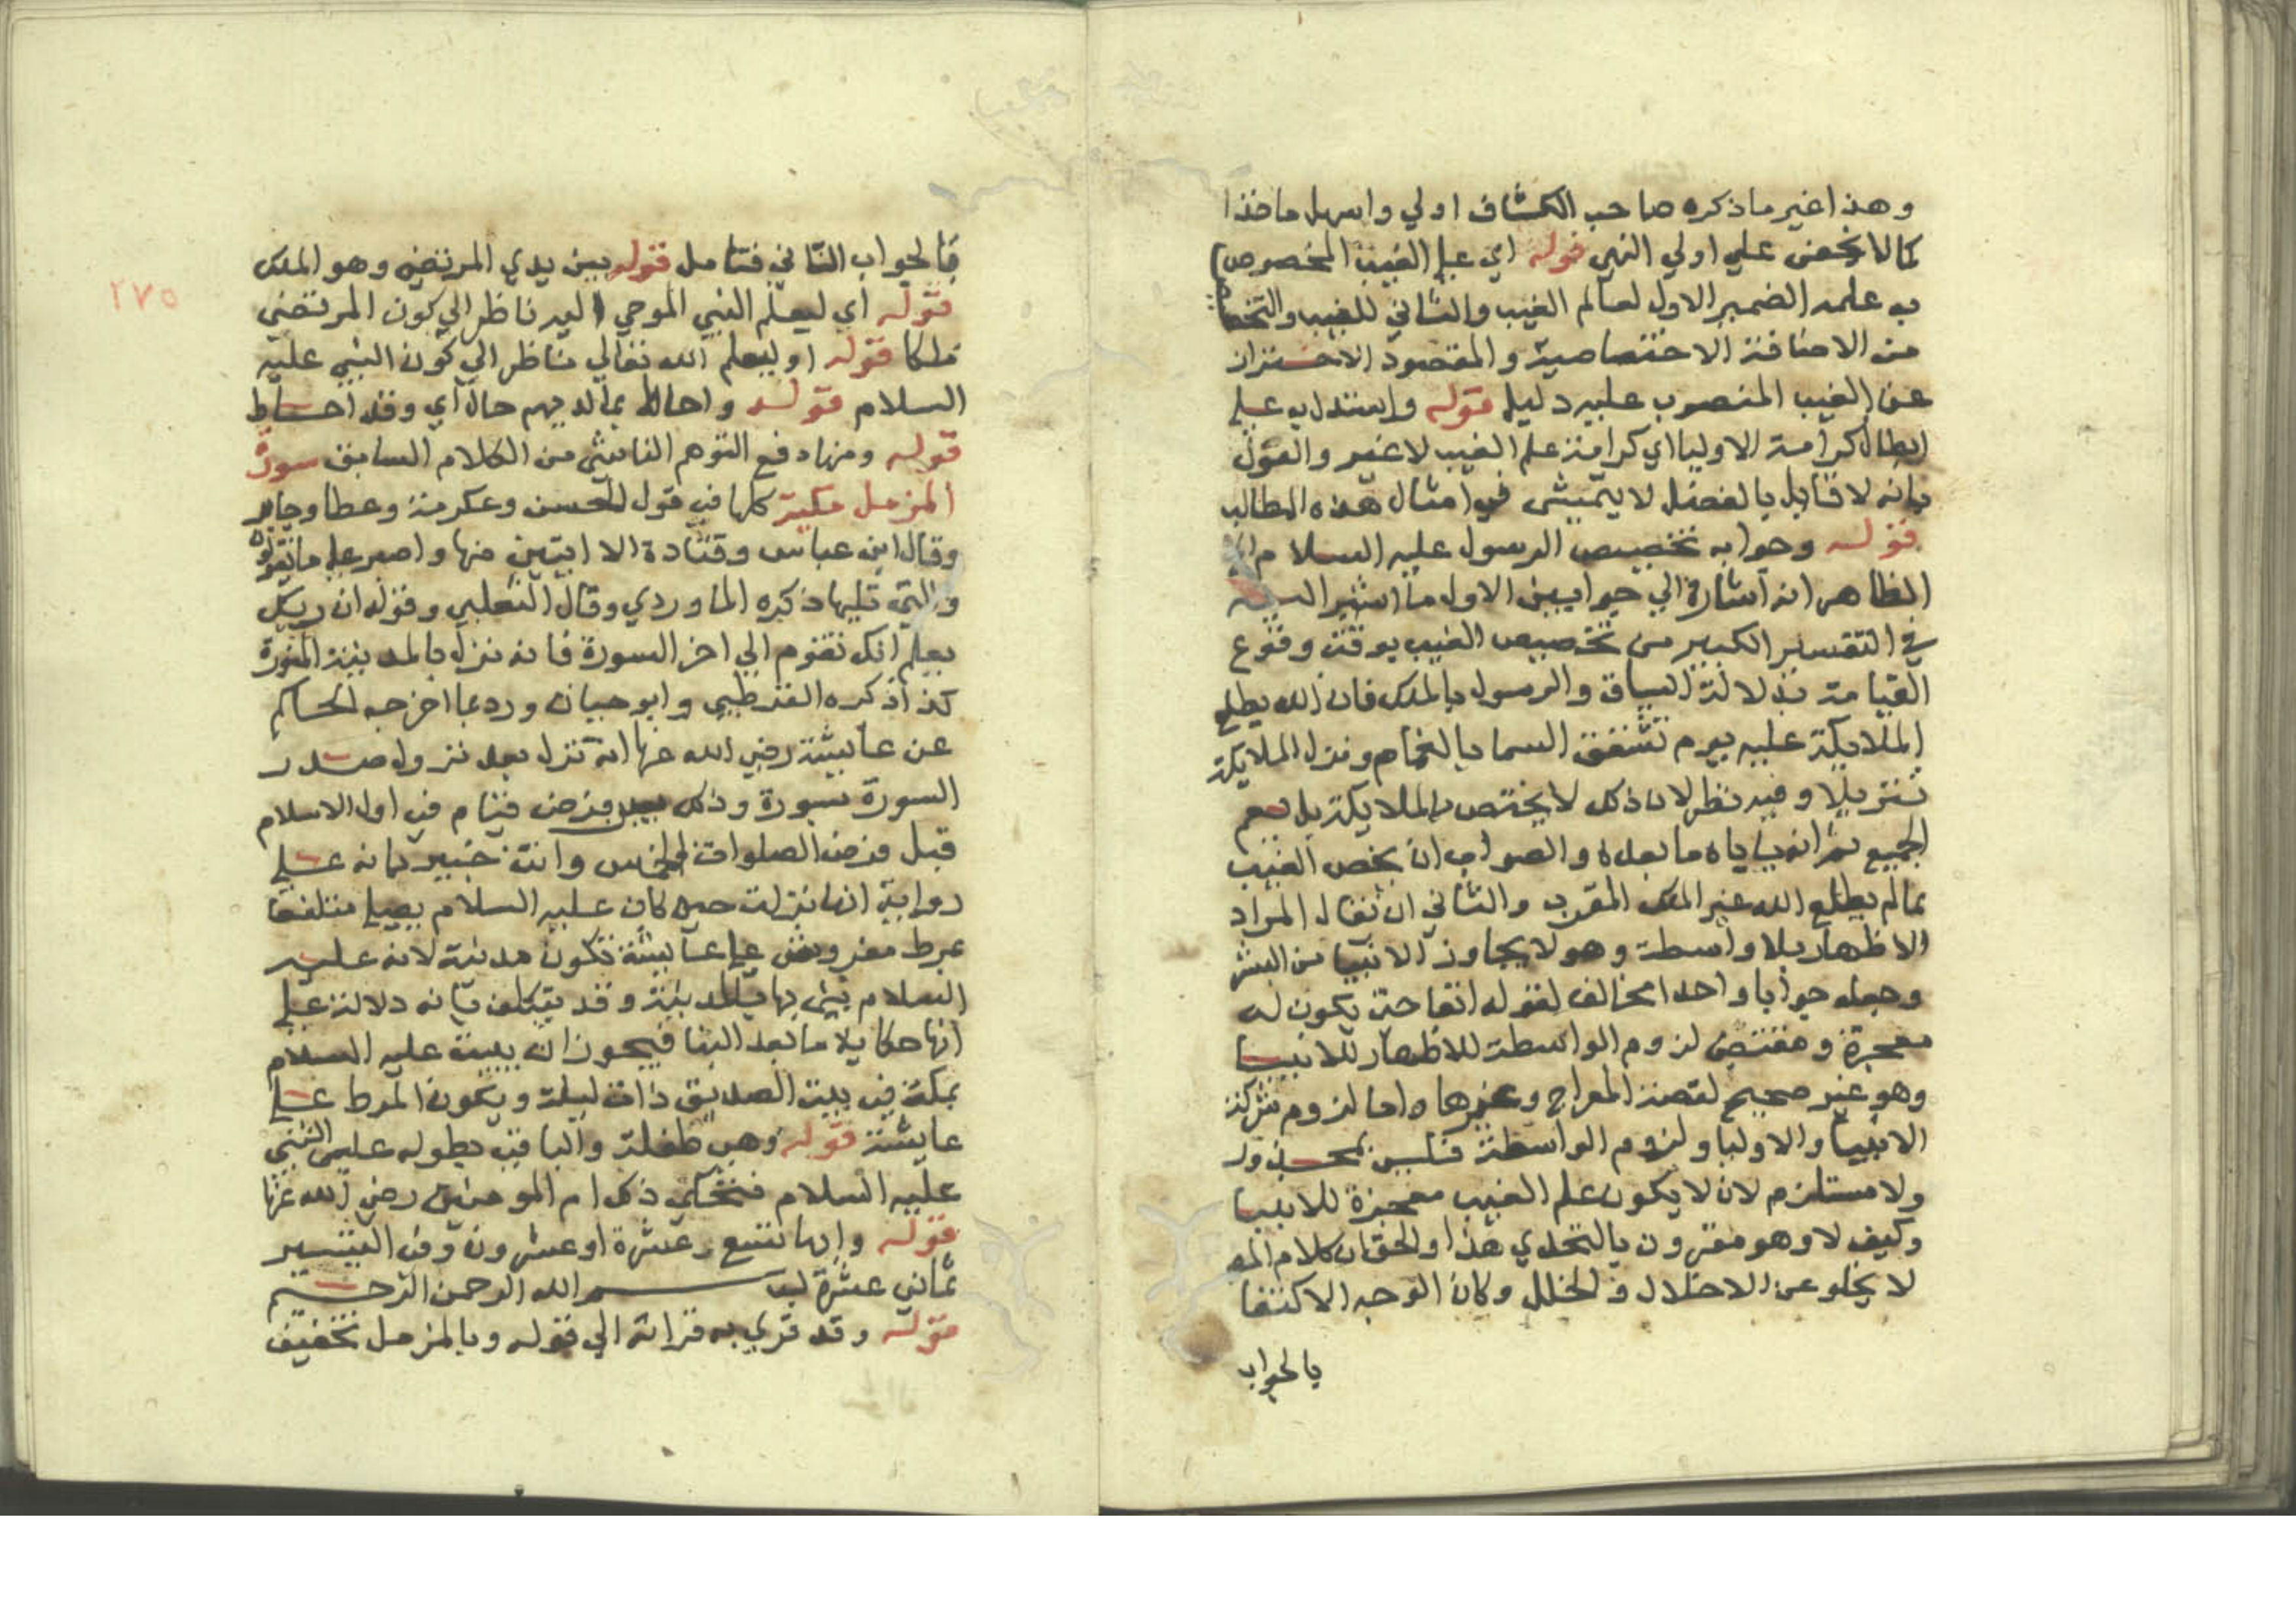 وهذا غير ما ذكره صاحب الكشاف اولي واسهل ماخذا
كما لا يخفى علي اولي النهي قوله اي علي الغيب المخصوص
به علمه الضمير الاول لعالم الغيب والثاني للغيب والتخصا
من الاضافة الاختصاصية والمقصود الاحتراز
عن الغيب المنصوب عليه دليل قوله واستدل به علي
ابطال كرامة الاوليا اي كرامة علم الغيب لا غير والقول
بانه لا قايل بالفصل لا يتمشى في امثال هذه المطالب
قوله وجوابه تخصيص الرسول عليه السلام
الظاهر انه اشارة الي جوابين الاول ما اشير اليه
في التفسير الكبير من تخصيص الغيب بوقت وقوع
القيامة بدلالة السياق والرسول بالملك فان الله يطلع
الملايكة عليه يوم تشقق السما بالغمام ونزل الملايكة
تنزيلا وفيه نظر لان ذلك لا يختص بالملايكة بل يعم
الجميع ثم انه ياباه ما بعده والصواب ان يخص الغيب
بما لم يطلع الله غير الملك المقرب والثاني ان يقال المراد
الاظهار بلا واسطة وهو لا يجاوز الانبيا من البشر
وجعله جوابا واحدا مخالف لقوله انفا حتي يكون له
معجزة ومقتضى لزوم الواسطة للاظهار للانبيا
وهو غير صحيح لقصة المعراج وغيرها واما لزوم شركة
الانبيا والاوليا ولزوم الواسطة فليس بمحذور
ولا مستلزم لان لا يكون علم الغيب معجزة للانبيا
وكيف لا وهو مقرون بالتحدي هذا والحق ان كلام المص
لا يخلو عن الاخلال والخلل وكان الوجه الاكتفا
بالجواب
بالجواب الثاني فتامل قوله بين يدي المرتضي وهو الملك
قوله اي ليعلم النبي الموحي اليه ناظر الي كون المرتضي
ملكا قوله او ليعلم الله تعالي ناظر الي كون النبي عليه
السلام قوله واحاط بما لديهم حال اي وقد احاط
قوله ومنها دفع التوهم الناشي من الكلام السابق سورة
المزمل مكية كلها في قول الحسن وعكرمة وعطا وجابر
وقال ابن عباس وقتادة الا ايتين منها واصبر علي ما يقولون
والتي تليها ذكره الماوردي وقال الثعلبي وقوله ان ربك
يعلم انك تقوم الي اخر السورة فانه نزل بالمدينة المنورة
كذا ذكره القرطبي وابو حيان ورد بما اخرجه الحاكم
عن عايشة رضي الله عنها انه نزل بعد نزول صدر
السورة بسورة وذلك حين فرض قيام في اول الاسلام
قبل فرض الصلوات الخمس وانت خبير بانه علي
رواية انها نزلت حين كان عليه السلام يصلي متلففا
بمرط مفروش علي عايشة تكون مدنية لانه عليه
السلام بني بها بالمدينة وقد يتكلف بانه دلالة علي
انها حكاية ما بعد البنا فيجوز ان يبيت عليه السلام
بمكة في بيت الصديق ذات ليلة ويكون المرط علي
عايشة قوله وهي طفلة والباقي بطوله علي النبي
عليه السلام فتحكي ذلك ام المومنين رضي الله عنها
قوله وايها تسع عشرة او عشرون وفي التيسير
ثماني عشرة بسم الله الرحمن الرحيم
قوله وقد قري به قراته الي قوله وبالمزمل تخفيف
٢٧٥